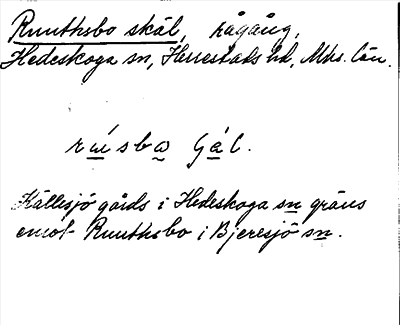 Ruuthsbo skäl, rågång,
Hedeskoga sn, Herrestads hd, Mhs. län.
rúsba gál.
Källesjö gårds i Hedeskoga sn gräns
emot Ruuthsbo i Bjeresjö sn.